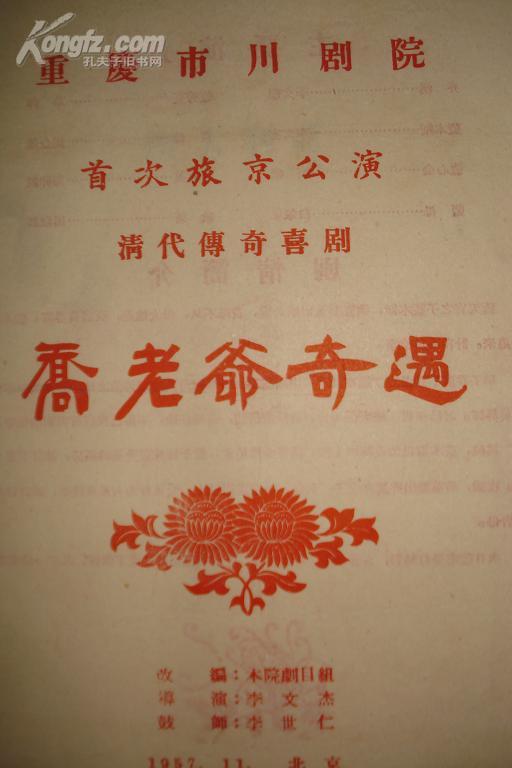 Kongfz.com
孔夫子旧书网
重慶市川剧院
首次旅京公演
清代傳奇喜剧
喬老爺奇遇
改編:本院劇目組
導演:李文杰
鼓師:李世仁
1957.11.北京